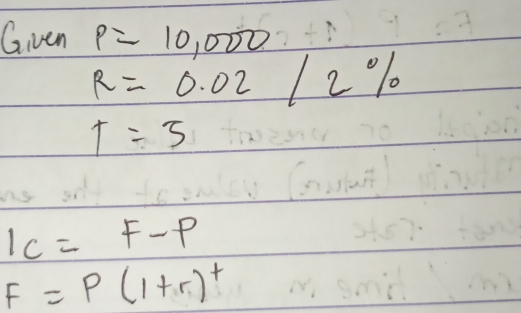 Given P = 10,000
R = 0.02 / 2%
T = 5
Ic = F - P
F = P (1+r)^t